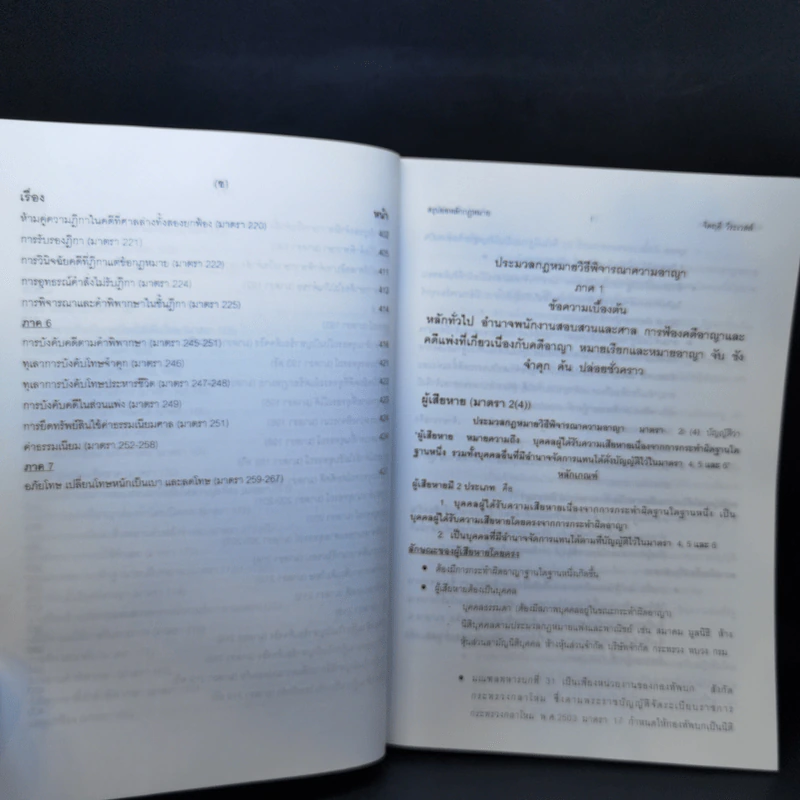 (ซ)
เรื่อง
หน้า
ห้ามคู่ความฎีกาในคดีที่ศาลล่างทั้งสองยกฟ้อง (มาตรา 220)
402
การรับรองฎีกา (มาตรา 221)
405
การวินิจฉัยคดีที่ฎีกาแต่ข้อกฎหมาย (มาตรา 222)
411
การอุทธรณ์คำสั่งไม่รับฎีกา (มาตรา 224)
412
การพิจารณาและคำพิพากษาในชั้นฎีกา (มาตรา 225)
414
ภาค 6
การบังคับคดีตามคำพิพากษา (มาตรา 245-251)
416
ทุเลาการบังคับโทษจำคุก (มาตรา 246)
421
ทุเลาการบังคับโทษประหารชีวิต (มาตรา 247-248)
การบังคับคดีในส่วนแพ่ง (มาตรา 249)
การยึดทรัพย์สินใช้ค่าธรรมเนียมศาล (มาตรา 251)
ค่าธรรมเนียม (มาตรา 252-258)
ภาค 7
อภัยโทษ เปลี่ยนโทษหนักเป็นเบา และลดโทษ (มาตรา 259-267)
สรุปย่อหลักกฎหมาย
ประมวลกฎหมายวิธีพิจารณาความอาญา
ภาค 1
ข้อความเบื้องต้น
หลักทั่วไป อำนาจพนักงานสอบสวนและศาล การฟ้องคดีอาญาและ
คดีแพ่งที่เกี่ยวเนื่องกับคดีอาญา หมายเรียกและหมายอาญา จับ ขัง
จำคุก ค้น ปล่อยชั่วคราว
ผู้เสียหาย (มาตรา 2(4))
ประมวลกฎหมายวิธีพิจารณาความอาญา มาตรา 2 (4) บัญญัติว่า
"ผู้เสียหาย หมายความถึง บุคคลผู้ได้รับความเสียหายเนื่องจากการกระทำผิดฐานใด
ฐานหนึ่ง รวมทั้งบุคคลอื่นที่มีอำนาจจัดการแทนได้ดังบัญญัติไว้ในมาตรา 4, 5 และ 6"
หลักเกณฑ์
ผู้เสียหายมี 2 ประเภท คือ
1. บุคคลผู้ได้รับความเสียหายเนื่องจากการกระทำผิดฐานใดฐานหนึ่ง เป็น
บุคคลผู้ได้รับความเสียหายโดยตรงจากการกระทำผิดอาญา
2. เป็นบุคคลที่มีอำนาจจัดการแทนได้ตามที่บัญญัติไว้ในมาตรา 4, 5 และ 6
ลักษณะของผู้เสียหายโดยตรง
● ต้องมีการกระทำผิดอาญาฐานใดฐานหนึ่งเกิดขึ้น
● ผู้เสียหายต้องเป็นบุคคล
บุคคลธรรมดา (ต้องมีสภาพบุคคลอยู่ในขณะกระทำผิดอาญา)
นิติบุคคลตามประมวลกฎหมายแพ่งและพาณิชย์ เช่น สมาคม มูลนิธิ ห้าง
หุ้นส่วนสามัญนิติบุคคล ห้างหุ้นส่วนจำกัด บริษัทจำกัด กระทรวง ทบวง กรม
● มณฑลทหารบกที่ 31 เป็นเพียงหน่วยงานของกองทัพบก สังกัด
กระทรวงกลาโหม ซึ่งตามพระราชบัญญัติจัดระเบียบราชการ
กระทรวงกลาโหม พ.ศ.2503 มาตรา 17 กำหนดให้กองทัพบกเป็นนิติ